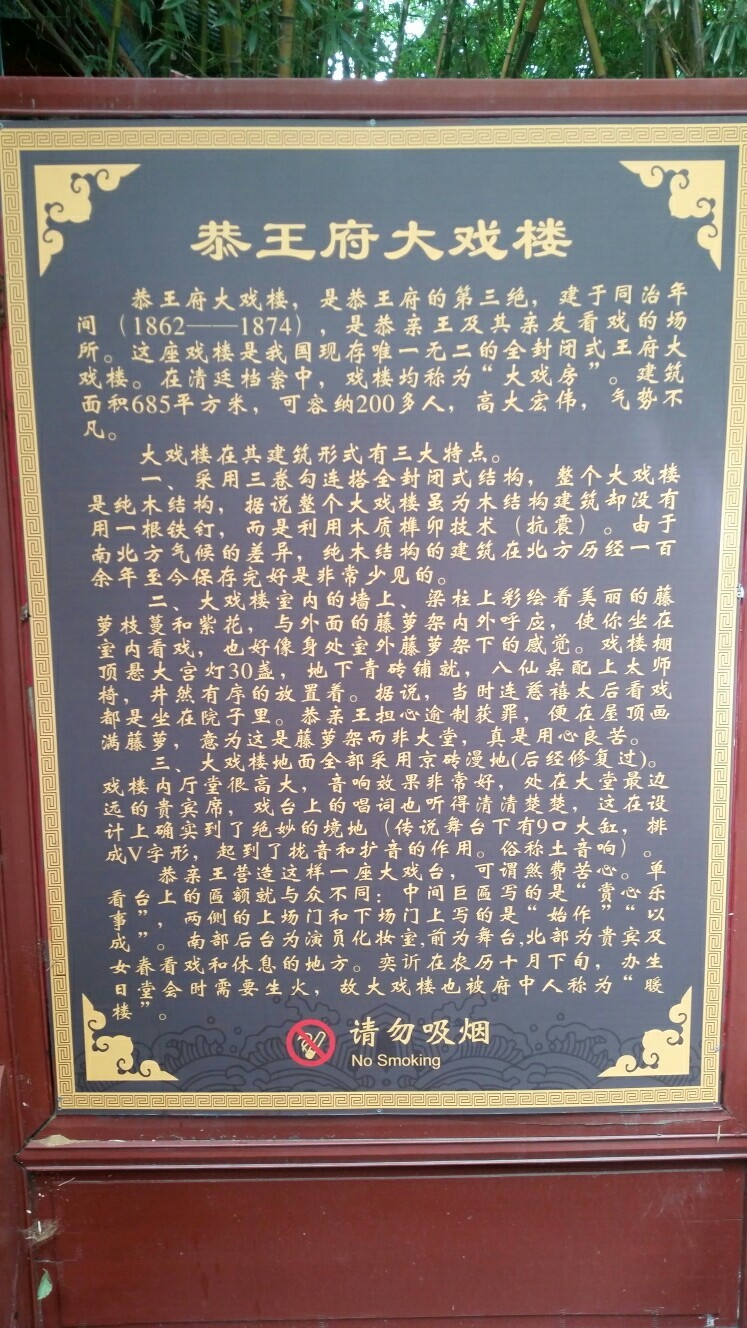 恭王府大戏楼
恭王府大戏楼，是恭王府的第三绝，建于同治年
间（1862——1874），是恭亲王及其亲友看戏的场
所。这座戏楼是我国现存唯一无二的全封闭式王府大
戏楼。在清廷档案中，戏楼均称为“大戏房”。建筑
面积685平方米，可容纳200多人，高大宏伟，气势不
凡。
大戏楼在其建筑形式有三大特点。
一、采用三卷勾连搭全封闭式结构，整个大戏楼
是纯木结构，据说整个大戏楼虽为木结构建筑却没有
用一根铁钉，而是利用木质榫卯技术（抗震）。由于
南北方气候的差异，纯木结构的建筑在北方历经一百
余年至今保存完好是非常少见的。
二、大戏楼室内的墙上、梁柱上彩绘着美丽的藤
萝枝蔓和紫花，与外面的藤萝架内外呼应，使你坐在
室内看戏，也好像身处室外藤萝架下的感觉。戏楼棚
顶悬大宫灯30盏，地下青砖铺就，八仙桌配上太师
椅，井然有序的放置着。据说，当时连慈禧太后看戏
都是坐在院子里。恭亲王担心逾制获罪，便在屋顶画
满藤萝，意为这是藤萝架而非大堂，真是用心良苦。
三、大戏楼地面全部采用京砖漫地(后经修复过)。
戏楼内厅堂很高大，音响效果非常好，处在大堂最边
远的贵宾席，戏台上的唱词也听得清清楚楚，这在设
计上确实到了绝妙的境地（传说舞台下有9口大缸，排
成V字形，起到了拢音和扩音的作用。俗称土音响）。
恭亲王营造这样一座大戏台，可谓煞费苦心。单
看台上的匾额就与众不同：中间巨匾写的是“赏心乐
事”，两侧的上场门和下场门上写的是“始作”“以
成”。南部后台为演员化妆室,前为舞台,北部为贵宾及
女眷看戏和休息的地方。奕訢在农历十月下旬，办生
日堂会时需要生火，故大戏楼也被府中人称为“暖
楼”。
请勿吸烟
No Smoking